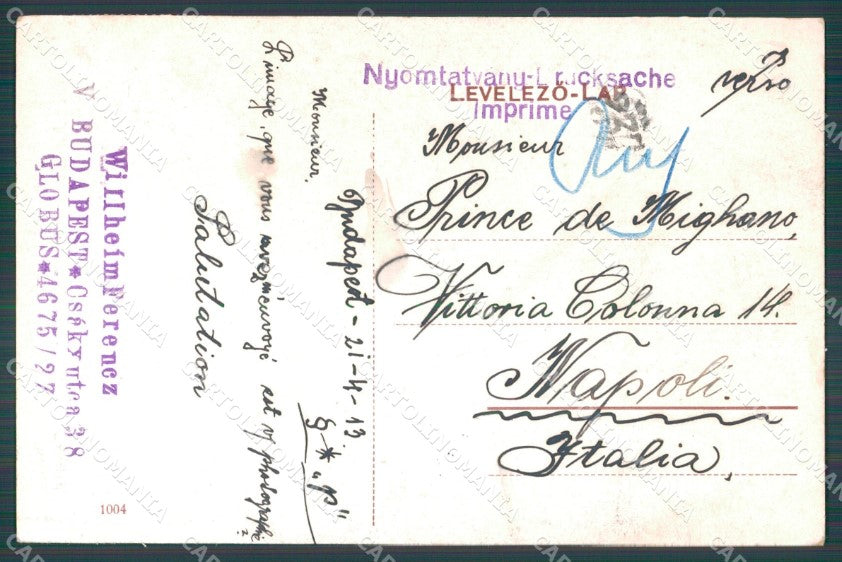 Nyomtatvány-Drucksache
LEVELEZŐ-LAP
Imprime
verso
Monsieur
Prince de Mighano,
Vittoria Colonna 14.
Napoli.
Italia,
Budapest - 21-4-13.
Monsieur,
L'image, que vous m'envoyé est y photographie
Salutation
Willheim Ferencz
BUDAPEST*Csáky utca 38
GLOBUS*4675/27
1004
CARTOLINOMANIA